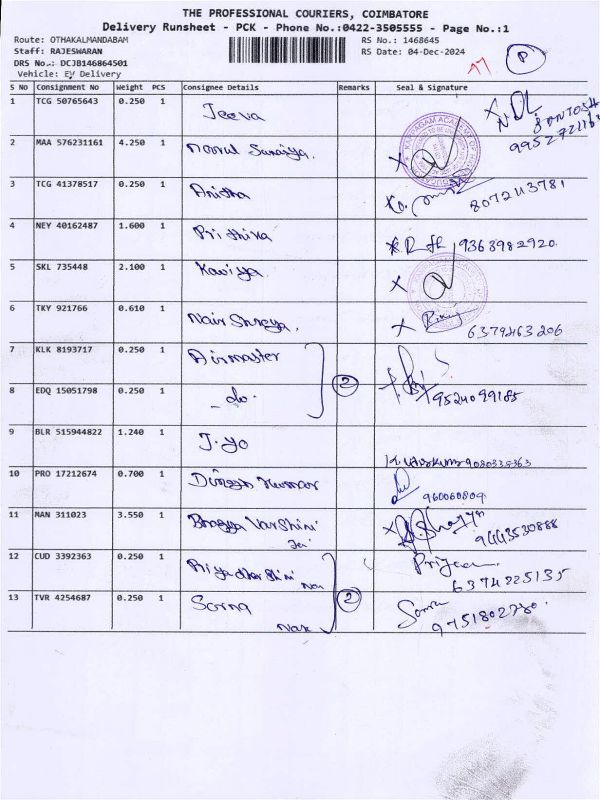 THE PROFESSIONAL COURIERS, COIMBATORE
Delivery Runsheet - PCK - Phone No.:0422-3505555 - Page No.:1
Route: OTHAKALMANDABAM RS No.: 1468645
Staff: RAJESWARAN RS Date: 04-Dec-2024
DRS No.: DCJB146864501
Vehicle: EV Delivery
P
S No Consignment No Weight PCS Consignee Details Remarks Seal & Signature
1 TCG 50765643 0.250 1 Jeeva
2 MAA 576231161 4.250 1
3 TCG 41378517 0.250 1 Anitha 8072113781
4 NEY 40162487 1.600 1 Prithika 9363982920
5 SKL 735448 2.100 1 Kaviya
6 TKY 921766 0.610 1 Nair Shreya 6379463206
7 KLK 8193717 0.250 1 Airmaster
8 EDQ 15051798 0.250 1 -do- 2 9524099185
9 BLR 515944822 1.240 1 J.yo
10 PRO 17212674 0.700 1 Dinesh Kumar
11 MAN 311023 3.550 1 Bhagya Varshini 9443530888
12 CUD 3392363 0.250 1 Priyadharshini 6374225135
13 TVR 4254687 0.250 1 Sorna 2 9751802780